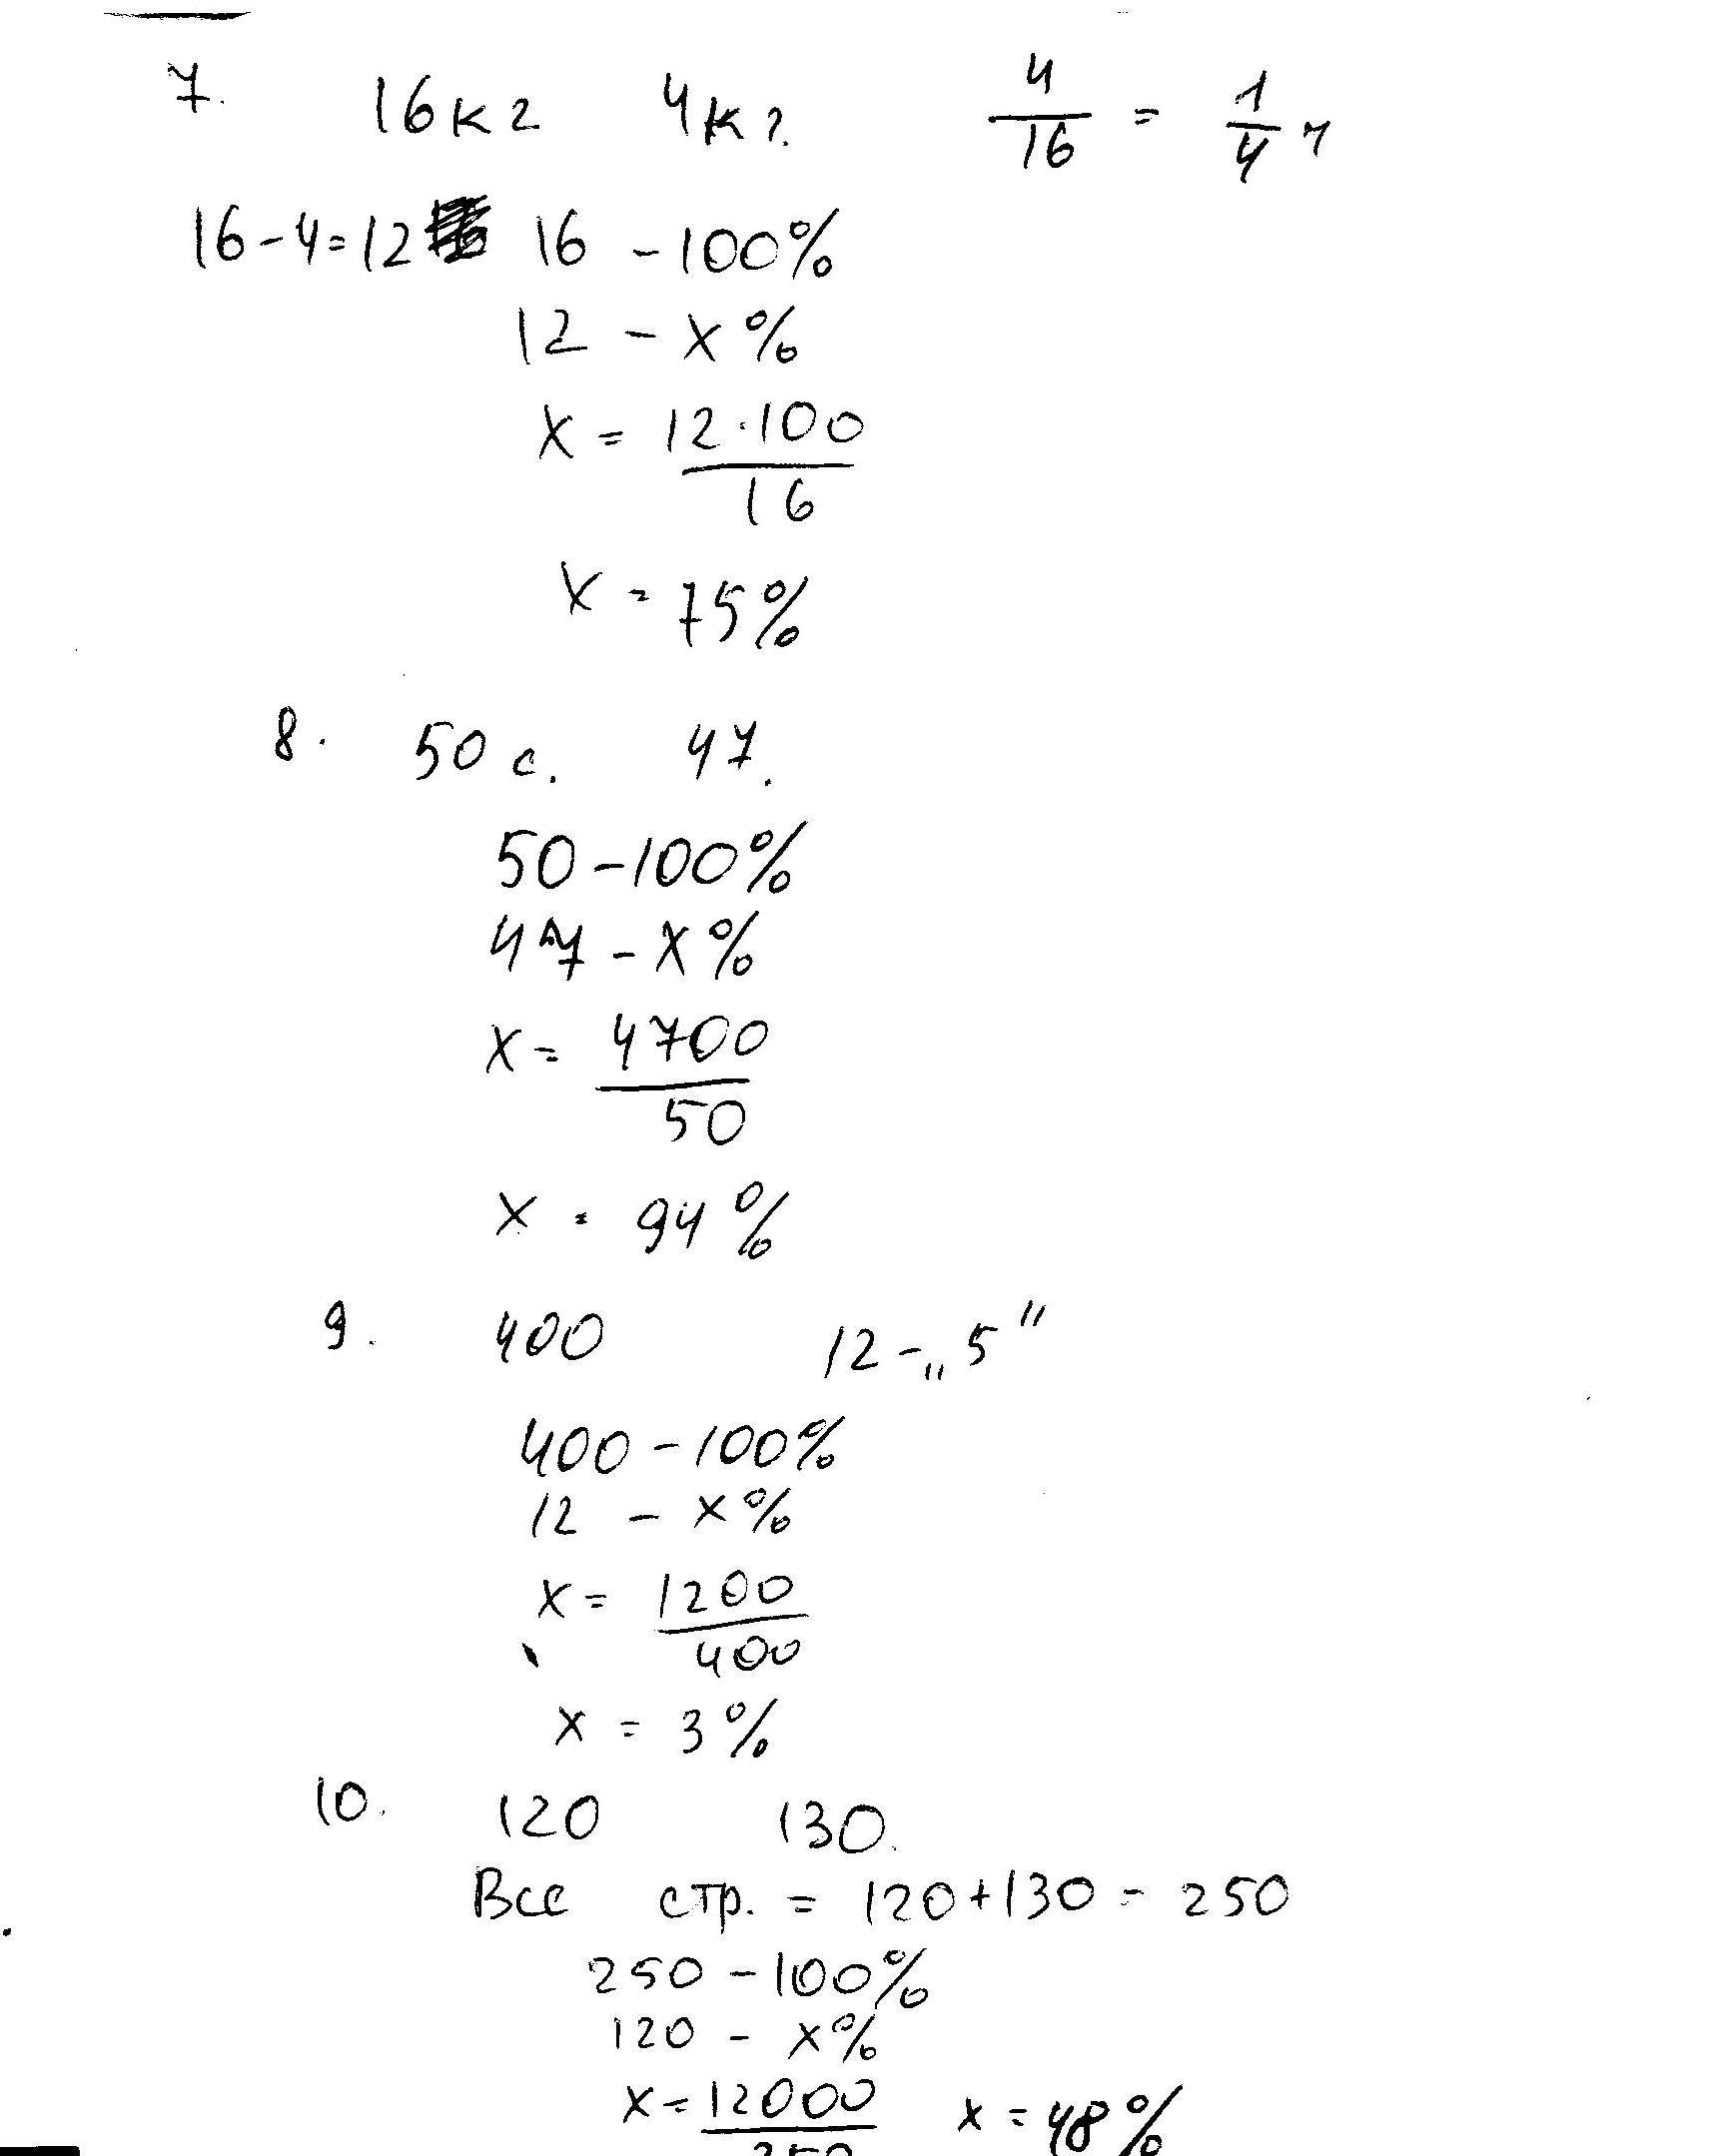 7. 16 кг 4 кг. 4/16 = 1/4 ч
16 - 4 = 12 16 - 100%
12 - x%
x = 12 · 100
16
x = 75%
8. 50 с. 47.
50 - 100%
47 - x%
x = 4700
50
x = 94%
9. 400 12 - „5"
400 - 100%
12 - x%
x = 1200
400
x = 3%
10. 120 130.
Все стр. = 120 + 130 = 250
250 - 100%
120 - x%
x = 12000 x = 48%
250